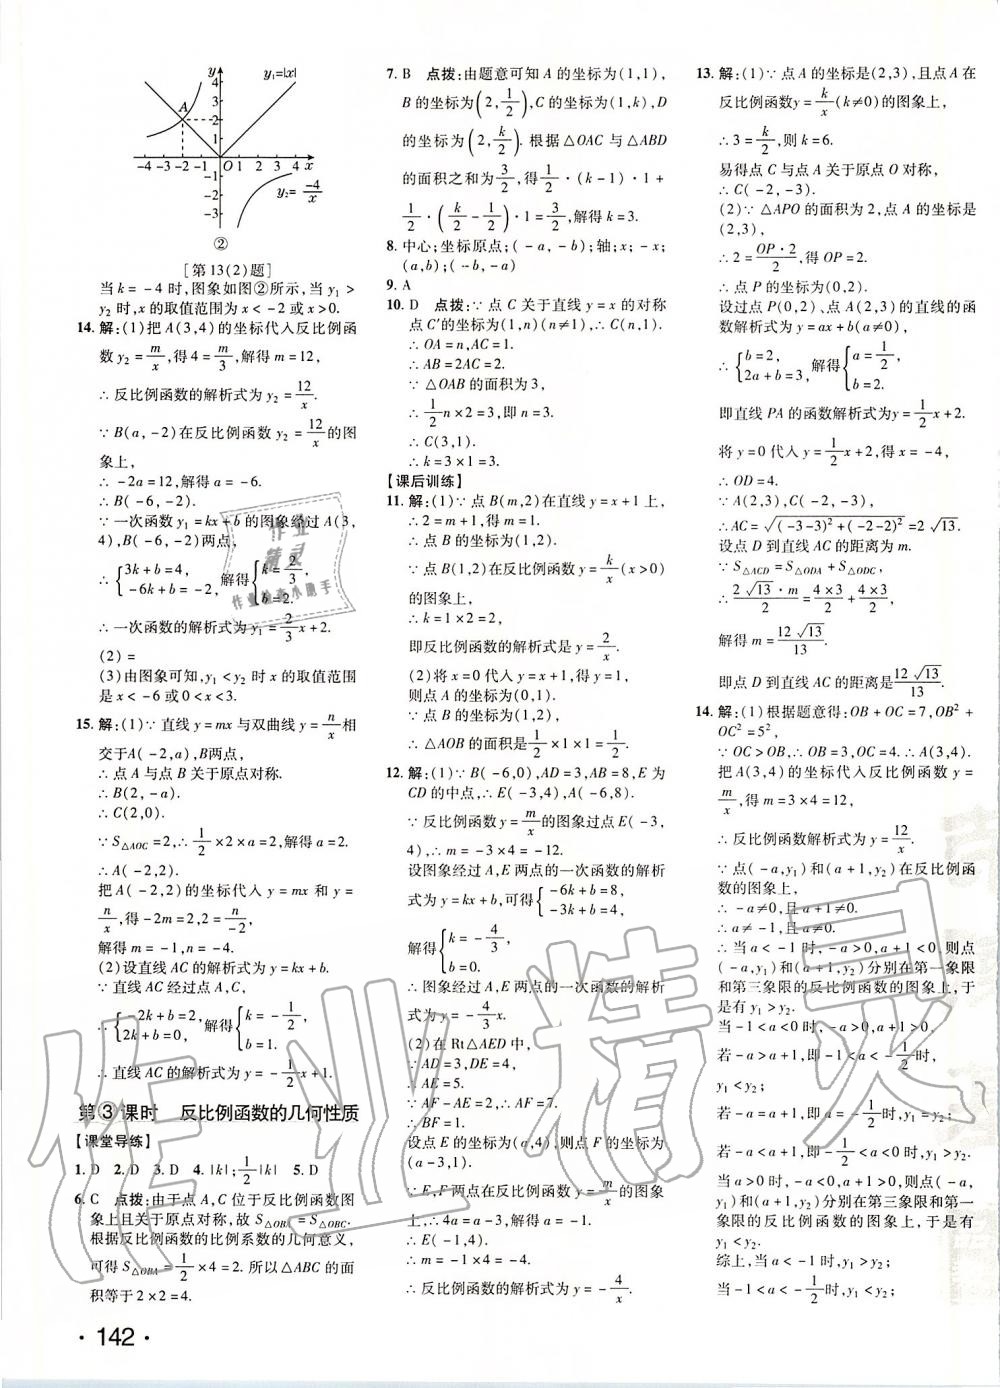 y
y₁=|x|
4
3
A
2
1
-4 -3 -2 -1 O 1 2 3 4 x
-1
-2
-3
y₂=-4/x
②
[第13(2)题]
当k=-4时,图象如图②所示,当y₁>
y₂时,x的取值范围为x<-2或x>0.
14. 解:(1)把A(3,4)的坐标代入反比例函
数y₂=m/x,得4=m/3,解得m=12,
∴反比例函数的解析式为y₂=12/x.
∵B(a,-2)在反比例函数y₂=12/x的图
象上,
∴-2a=12,解得a=-6.
∴B(-6,-2).
∵一次函数y₁=kx+b的图象经过A(3,
4),B(-6,-2)两点,
∴{3k+b=4, -6k+b=-2, 解得{k=2/3, b=2.
∴一次函数的解析式为y₁=2/3x+2.
(2)=
(3)由图象可知,y₁<y₂时x的取值范围
是x<-6或0<x<3.
15. 解:(1)∵直线y=mx与双曲线y=n/x相
交于A(-2,a),B两点,
∴点A与点B关于原点对称.
∴B(2,-a).
∴C(2,0).
∵S△AOC=2,∴1/2×2×a=2,解得a=2.
∴A(-2,2).
把A(-2,2)的坐标代入y=mx和y=
n/x,得-2m=2,2=n/-2,
解得m=-1,n=-4.
(2)设直线AC的解析式为y=kx+b.
∵直线AC经过点A,C,
∴{-2k+b=2, 2k+b=0. 解得{k=-1/2, b=1.
∴直线AC的解析式为y=-1/2x+1.
第③课时 反比例函数的几何性质
【课堂导练】
1. D 2. D 3. D 4. |k|;1/2|k| 5. D
6. C 点拨:由于点A,C位于反比例函数图
象上且关于原点对称,故S△OBA=S△OBC.
根据反比例函数的比例系数的几何意义,
可得S△OBA=1/2×4=2.所以△ABC的面
积等于2×2=4.
·142·
7. B 点拨:由题意可知A的坐标为(1,1),
B的坐标为(2,1/2),C的坐标为(1,k),D
的坐标为(2,k/2).根据△OAC与△ABD
的面积之和为3/2,可得1/2·(k-1)·1+
1/2·(k/2-1/2)·1=3/2,解得k=3.
8. 中心;坐标原点;(-a,-b);轴;x;-x;
(a,b);(-b,-a)
9. A
10. D 点拨:∵点C关于直线y=x的对称
点C'的坐标为(1,n)(n≠1),∴C(n,1).
∴OA=n,AC=1.
∴AB=2AC=2.
∵△OAB的面积为3,
∴1/2n×2=3,即n=3.
∴C(3,1).
∴k=3×1=3.
【课后训练】
11. 解:(1)∵点B(m,2)在直线y=x+1上,
∴2=m+1,解得m=1.
∴点B的坐标为(1,2).
∵点B(1,2)在反比例函数y=k/x(x>0)
的图象上,
∴k=1×2=2,
即反比例函数的解析式是y=2/x.
(2)将x=0代入y=x+1,得y=1,
则点A的坐标为(0,1).
∵点B的坐标为(1,2),
∴△AOB的面积是1/2×1×1=1/2.
12. 解:(1)∵B(-6,0),AD=3,AB=8,E为
CD的中点,∴E(-3,4),A(-6,8).
∵反比例函数y=m/x的图象过点E(-3,
4),∴m=-3×4=-12.
设图象经过A,E两点的一次函数的解析
式为y=kx+b,∴{-6k+b=8, -3k+b=4,
解得{k=-4/3, b=0.
∴图象经过A,E两点的一次函数的解析
式为y=-4/3x.
(2)在Rt△AED中,
∵AD=3,DE=4,
∴AE=5.
∵AF-AE=2,∴AF=7.
∴BF=1.
设点E的坐标为(a,4),则点F的坐标为
(a-3,1).
∵E,F两点在反比例函数y=m/x的图象
上,∴4a=a-3,解得a=-1.
∴E(-1,4).
∴m=-1×4=-4.
∴反比例函数的解析式为y=-4/x.
13. 解:(1)∵点A的坐标是(2,3),且点A在
反比例函数y=k/x(k≠0)的图象上,
∴3=k/2,则k=6.
易得点C与点A关于原点O对称,
∴C(-2,-3).
(2)∵△APO的面积为2,点A的坐标是
(2,3),
∴2=OP·2/2,得OP=2.
∴点P的坐标为(0,2).
设过点P(0,2)、点A(2,3)的直线的函
数解析式为y=ax+b(a≠0),
∴{b=2, 2a+b=3,解得{a=1/2, b=2.
即直线PA的函数解析式为y=1/2x+2.
将y=0代入y=1/2x+2,得x=-4.
∴OD=4.
∵A(2,3),C(-2,-3),
∴AC=√((-3-3)²+(-2-2)²)=2√13.
设点D到直线AC的距离为m.
∵S△ACD=S△ODA+S△ODC,
∴2√13·m/2=4×3/2+4×3/2,
解得m=12√13/13.
即点D到直线AC的距离是12√13/13.
14. 解:(1)根据题意得:OB+OC=7,OB²+
OC²=5²,
∵OC>OB,∴OB=3,OC=4.∴A(3,4).
把A(3,4)的坐标代入反比例函数y=
m/x,得m=3×4=12,
∴反比例函数解析式为y=12/x.
∵点(-a,y₁)和(a+1,y₂)在反比例函
数的图象上,
∴-a≠0,且a+1≠0.
∴a≠-1,且a≠0.
∴当a<-1时,-a>0,a+1<0,则点
(-a,y₁)和(a+1,y₂)分别在第一象限
和第三象限的反比例函数的图象上,于
是有y₁>y₂.
当-1<a<0时,-a>0,a+1>0,
若-a>a+1,即-1<a<-1/2时,
y₁<y₂;
若-a=a+1,即a=-1/2时,y₁=y₂;
若-a<a+1,即-1/2<a<0时,y₁>y₂.
当a>0时,-a<0,a+1>0,则点(-a,
y₁)和(a+1,y₂)分别在第三象限和第一
象限的反比例函数的图象上,于是有
y₁<y₂.
综上,当a<-1时,y₁>y₂;
作业精灵
作业检查小助手
作业精灵